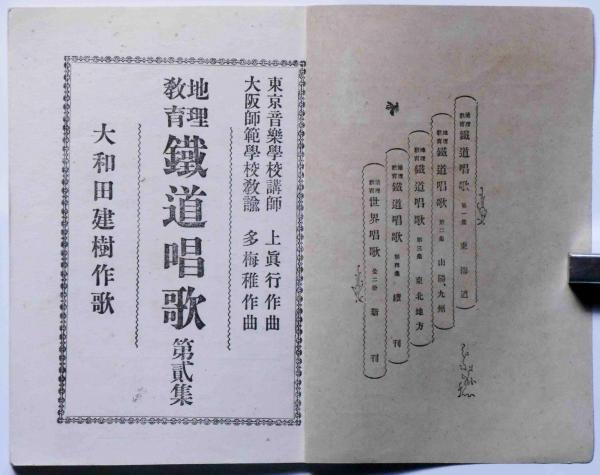 地理教育鐵道唱歌 第一集 東海道
地理教育鐵道唱歌 第二集 山陽、九州
地理教育鐵道唱歌 第三集 東北地方
地理教育鐵道唱歌 第四集 續刊
地理教育世界唱歌 全二册 新刊
東京音樂學校講師 上眞行作曲
大阪師範學校教諭 多梅稚作曲
地理教育 鐵道唱歌 第貳集
大和田建樹作歌